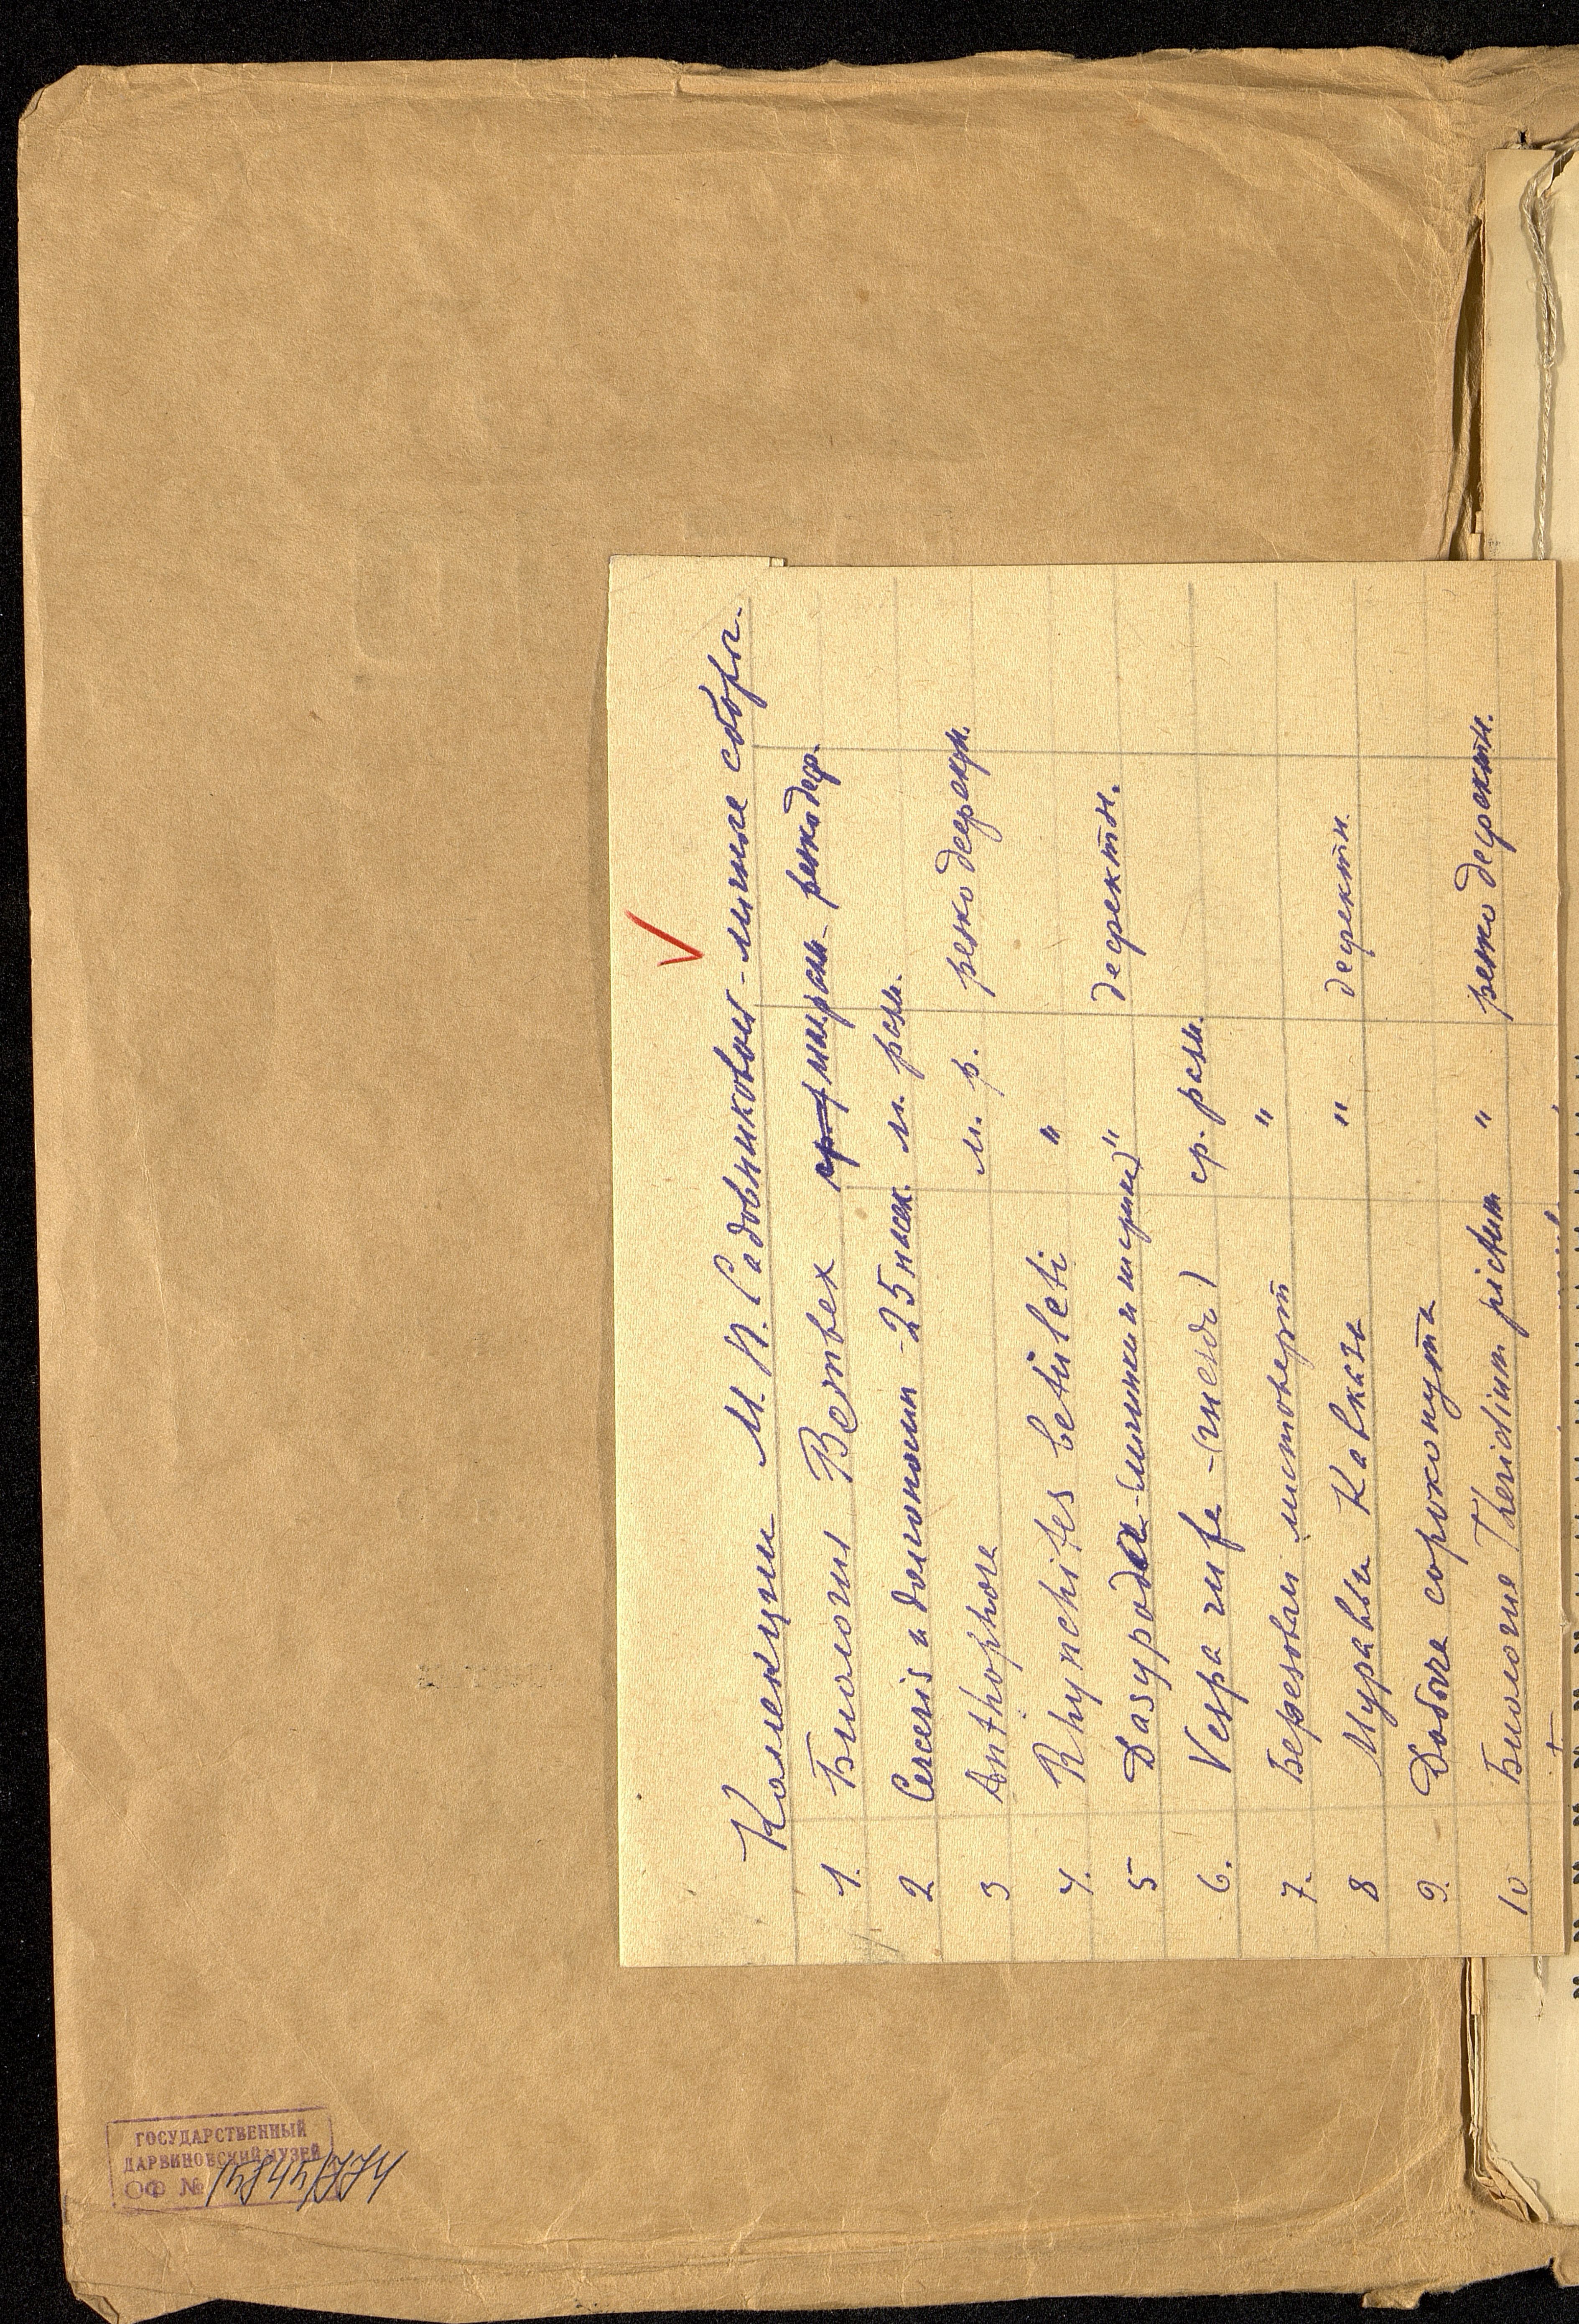 Коллекции М. П. Садовниковой - личные сборы.
1. Биология Bembex мал. разм. - резко деф.
2 Cerceris и долгоносик - 25 насек. м. разм.
3 Anthophora м. р. резко дефектн.
4. Rhynchites betuleti "
5 Dasypoda - (личинки и шерики) " дефектн.
6. Vespa rufa - (гнездо) ср. разм.
7. Березовый листоверт "
8 Муравьи Кавказа " дефектн.
9. Добыча сорокопута
10 Биология Theridium pictum " резко дефектн.
ГОСУДАРСТВЕННЫЙ
ДАРВИНОВСКИЙ МУЗЕЙ
ОФ № 15845/774